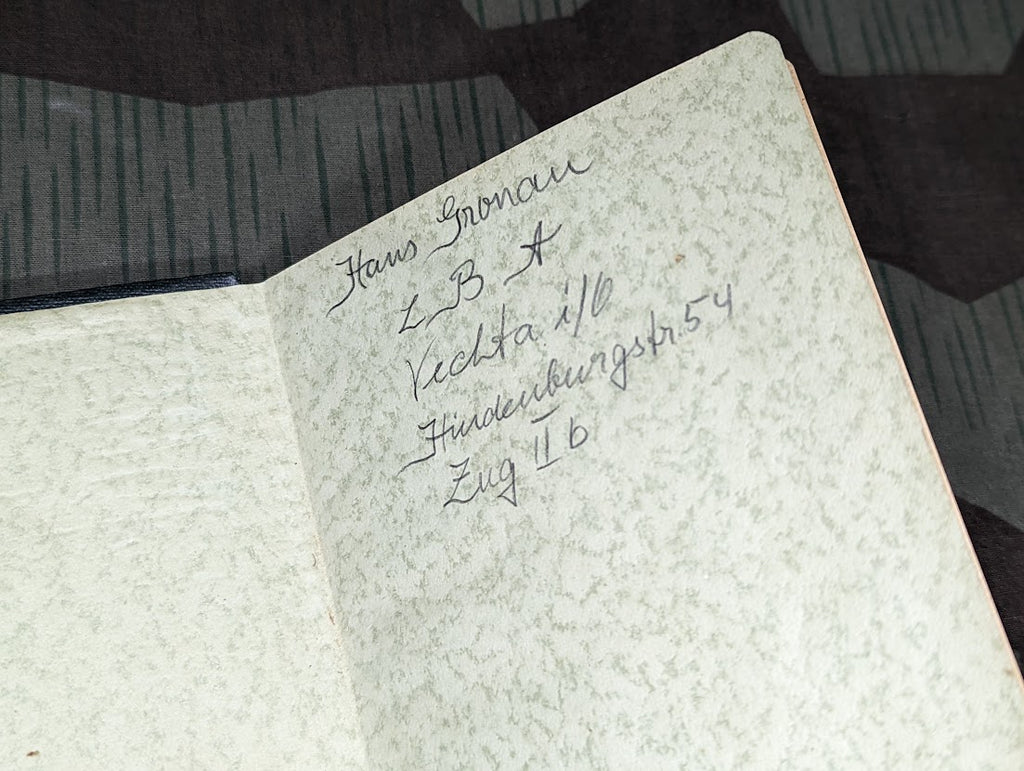 Hans Gronau
L B A
Vechta i/O
Hindenburgstr. 54
Zug II b